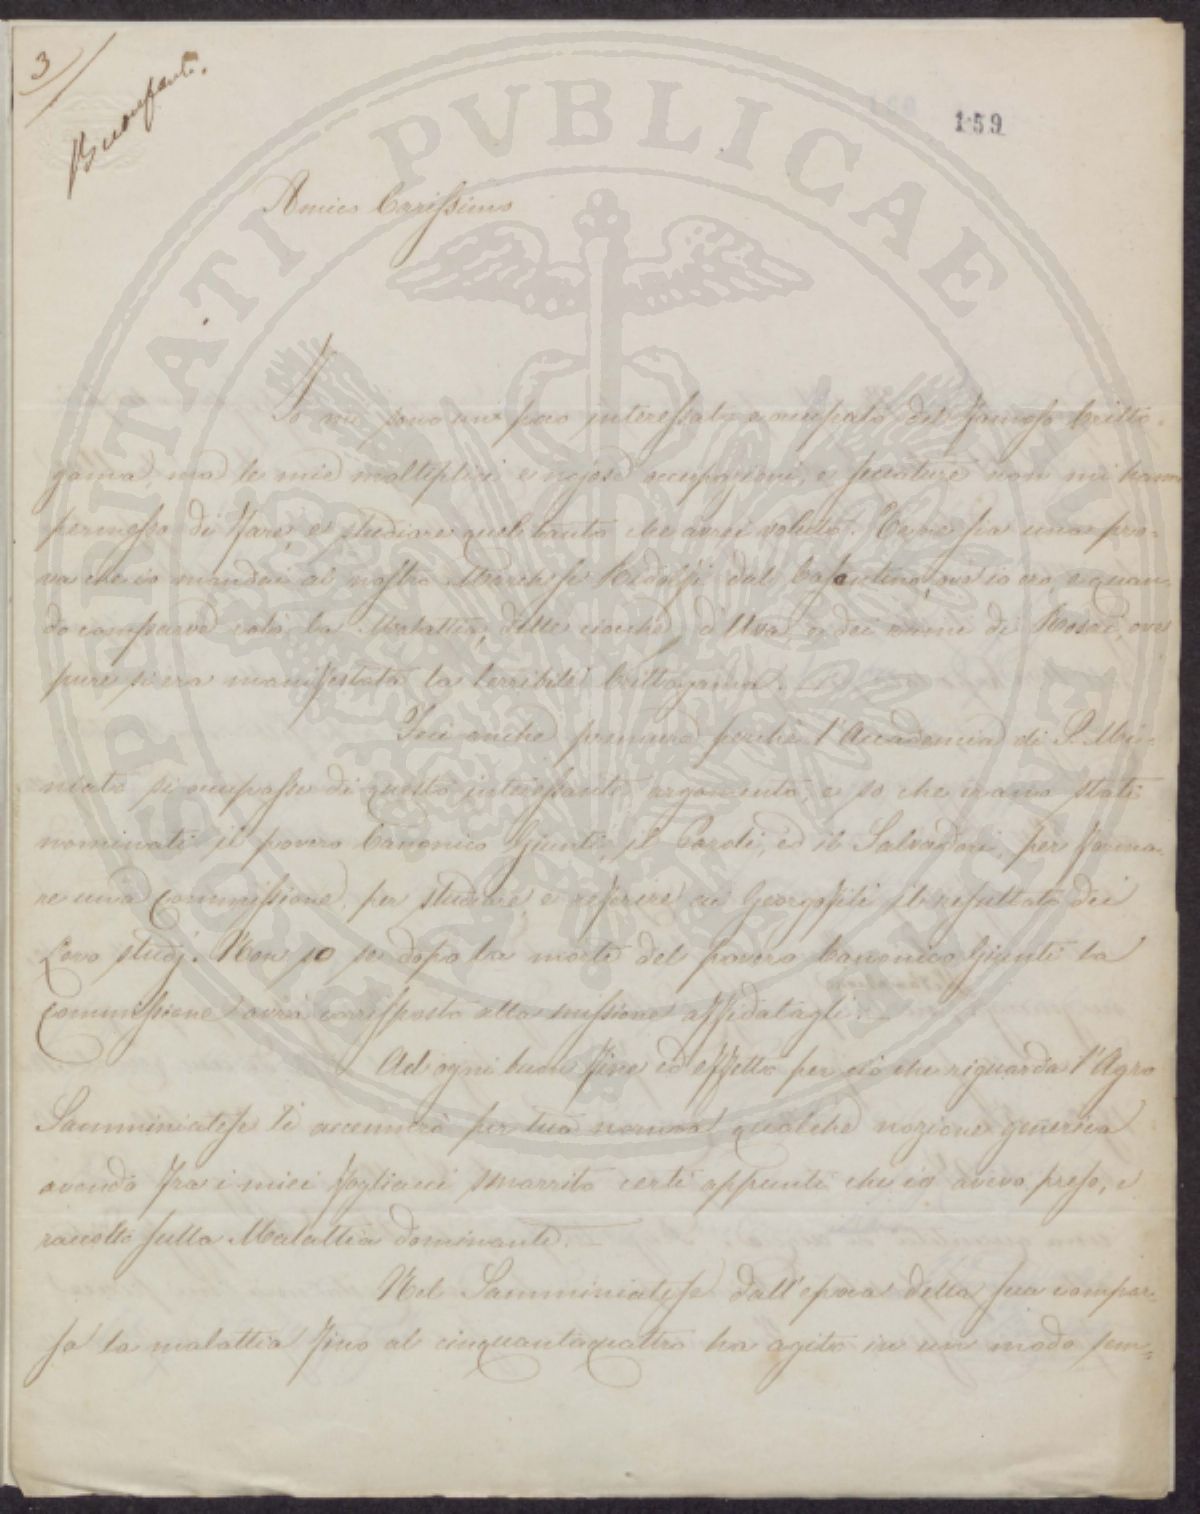 3/
Buonfanti.
159
PROSPERITATI PVBLICAE AVGENDAE
Amico Carissimo
Io mi sono un poco interessato e occupato del famosa Critto-
gama, ma le mie moltiplici e nojose occupazioni, e seccature non mi hanno
permesso di fare, e studiare quel tanto che avrei voluto. Come sia una pro-
va che io mandai al nostro Marchese Ridolfi dal Casentino, ove io ero, e quan-
do comparve colà la Malattia, delle ciocche d'Uva e dei rami di Rosai, ove
pure si era manifestata la terribile Crittogama. —
Feci anche premure perché l'Accademia di S. Mi-
niato si occupasse di questo interessante argomento, e so che erano stati
nominati il povero Canonico Giunti, il Caroti, ed il Salvadori, per forma-
re una Commissione, per studiare, e referire ai Georgofili il resultato dei
Loro studj. Non so se dopo la morte del povero Canonico Giunti la
Commissione avrà corrisposto alla missione affidatagli. —
Ad ogni buon fine ed effetto per ciò che riguarda l'Agro
Samminiatese ti accennerò per tua norma qualche nozione generica
avendo fra i miei fogliacci smarrito certi appunti che io avevo preso, e
raccolto sulla Malattia dominante. —
Nel Samminiatese dall'epoca della sua compar-
sa la malattia fino al cinquantaquattro ha agito in un modo sem-